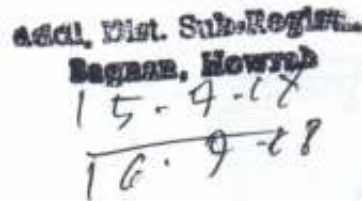 Addl. Dist. Sub-Regist...
Bagnan, Howrah
15.9.18
16.9.18